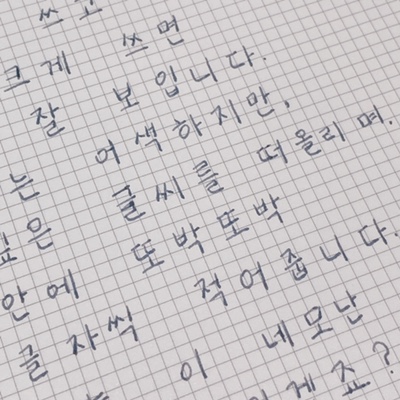 쓰고
크게 쓰면
잘 보입니다.
는 어색하지만,
싶은 글씨를 떠올리며.
안에 또박또박
글자씩 적어줍니다.
이 네모난
게죠?